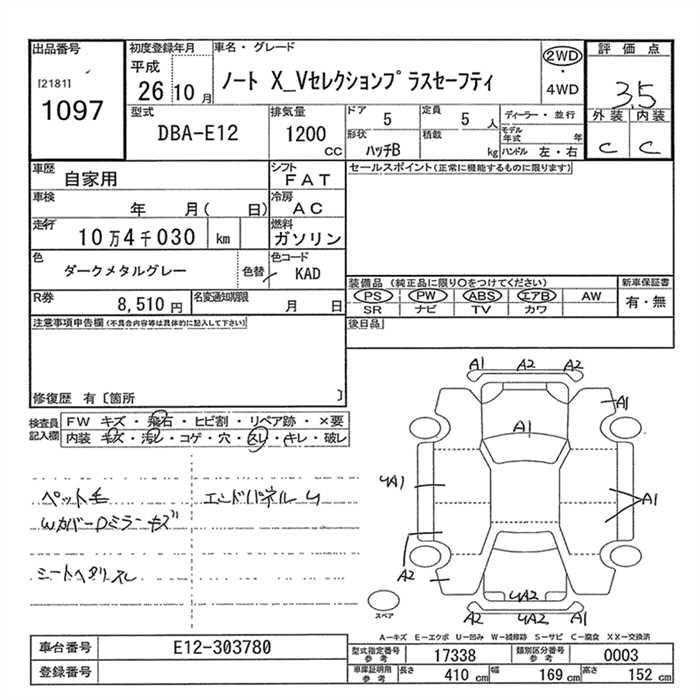 出品番号
[2181]
1097
初度登録年月
平成
26 10 月
車名・グレード
ノート X_Vセレクションプラスセーフティ
2WD
・
4WD
評価点
3.5
外装 内装
C C
型式
DBA-E12
排気量
1200
CC
ドア 5
定員 5 人
形状 ハッチB
積載 kg
ディーラー・並行
モデル年式 年
ハンドル 左・右
車歴
自家用
シフト
FAT
セールスポイント(正常に機能するものに限ります)
車検
年 月( 日)
冷房
AC
走行
10万4千030 km
燃料
ガソリン
色
ダークメタルグレー
色替
色コード
KAD
装備品 (純正品に限り○をつけてください)
PS PW ABS エアB AW
SR ナビ TV カワ
新車保証書
有・無
R券
8,510 円
名変通知期限
月 日
後日品
注意事項申告欄(不具合内容等は具体的に記入して下さい)
修復歴 有〔箇所 〕
検査員
記入欄
FW キズ・飛石・ヒビ割・リペア跡・×要
内装・キズ・汚レ・コゲ・穴・スレ・キレ・破レ
ペット毛
エンドパネルU
WカバーDミラーキズ
シートヘタリスレ
A1 A2 A2
A1
A1
UA1
A1
A2
UA2
A2 UA2 A1
スペア
A-キズ E-エクボ U-凹み W-補修跡 S-サビ C-腐食 XX-交換済
車台番号
E12-303780
登録番号
型式指定番号
参考
17338
類別区分番号
参考
0003
車庫証明用
参考
長さ 410 cm
幅 169 cm
高さ 152 cm